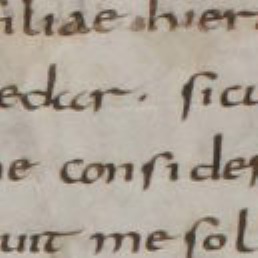 iliae hier
edar. sicu
e consider
uit me sol